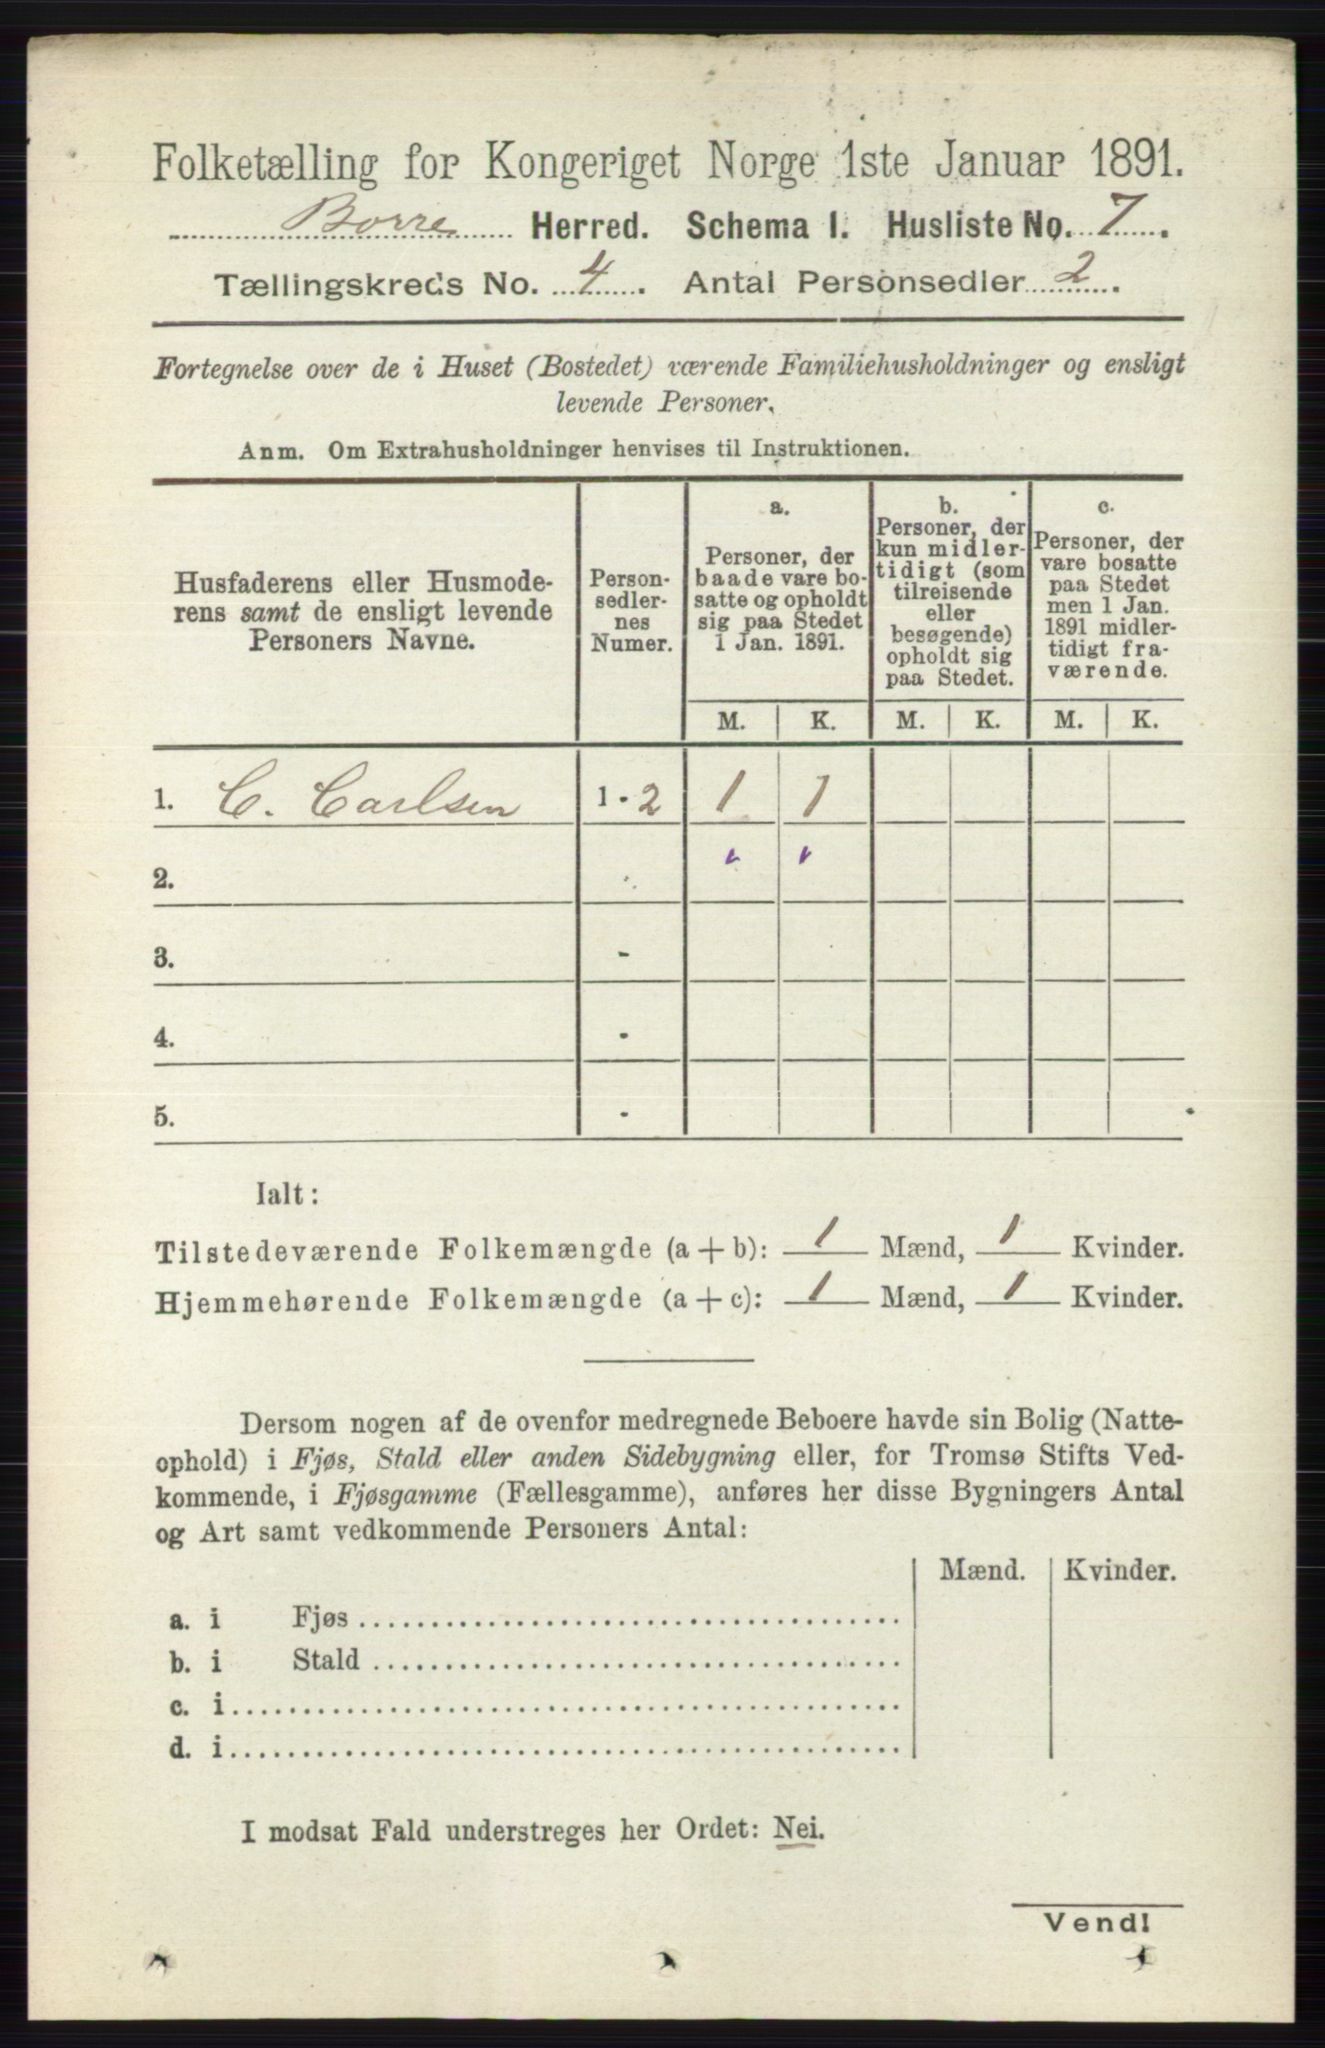 Folketælling for Kongeriget Norge 1ste Januar 1891.
Borre Herred. Schema 1. Husliste No. 7.
Tællingskreds No. 4. Antal Personsedler 2.
Fortegnelse over de i Huset (Bostedet) værende Familiehusholdninger og ensligt
levende Personer.
Anm. Om Extrahusholdninger henvises til Instruktionen.
Husfaderens eller Husmode-
rens samt de ensligt levende
Personers Navne.
Person-
sedler-
nes
Numer.
a.
Personer, der
baade vare bo-
satte og opholdt
sig paa Stedet
1 Jan. 1891.
b.
Personer, der
kun midler-
tidigt (som
tilreisende
eller
besøgende)
opholdt sig
paa Stedet.
c.
Personer, der
vare bosatte
paa Stedet
men 1 Jan.
1891 midler-
tidigt fra-
værende.
M. K. M. K. M. K.
1. C. Carlsen 1 - 2 1 1
2.
3. -
4. -
5. -
Ialt:
Tilstedeværende Folkemængde (a + b): 1 Mænd, 1 Kvinder.
Hjemmehørende Folkemængde (a + c): 1 Mænd, 1 Kvinder.
Dersom nogen af de ovenfor medregnede Beboere havde sin Bolig (Natte-
ophold) i Fjøs, Stald eller anden Sidebygning eller, for Tromsø Stifts Ved-
kommende, i Fjøsgamme (Fællesgamme), anføres her disse Bygningers Antal
og Art samt vedkommende Personers Antal:
Mænd. Kvinder.
a. i Fjøs
b. i Stald
c. i
d. i
I modsat Fald understreges her Ordet: Nei.
Vend!